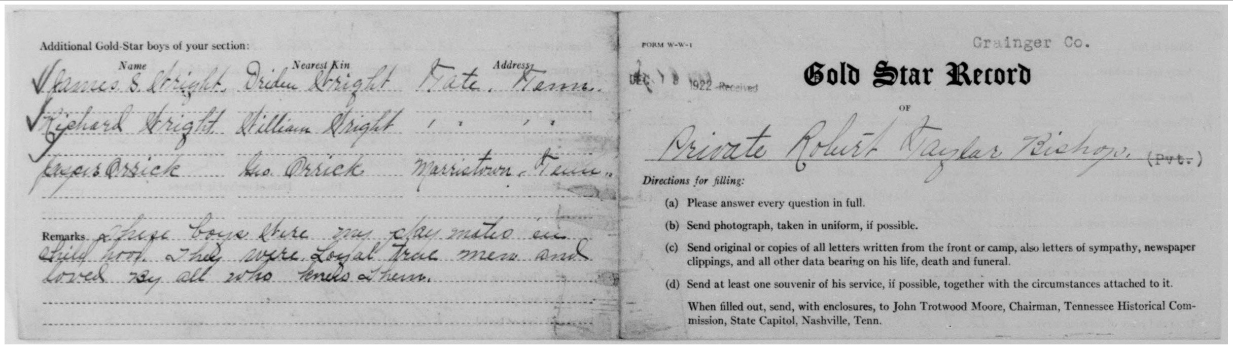 Additional Gold-Star boys of your section:
Name Nearest Kin Address
James S. Wright Driden Wright Tate, Tenn.
Richard Wright William Wright " " " "
Orrick Geo. Orrick Morristown, Tenn.
Remarks These boys were my play mates in
child hood. They were Loyal true men and
loved By all who knew Them.
FORM W-W-1
Grainger Co.
DEC 1922 Received
Gold Star Record
OF
Private Robert Taylor Bishop. (Pvt.)
Directions for filling:
(a) Please answer every question in full.
(b) Send photograph, taken in uniform, if possible.
(c) Send original or copies of all letters written from the front or camp, also letters of sympathy, newspaper
clippings, and all other data bearing on his life, death and funeral.
(d) Send at least one souvenir of his service, if possible, together with the circumstances attached to it.
When filled out, send, with enclosures, to John Trotwood Moore, Chairman, Tennessee Historical Com-
mission, State Capitol, Nashville, Tenn.